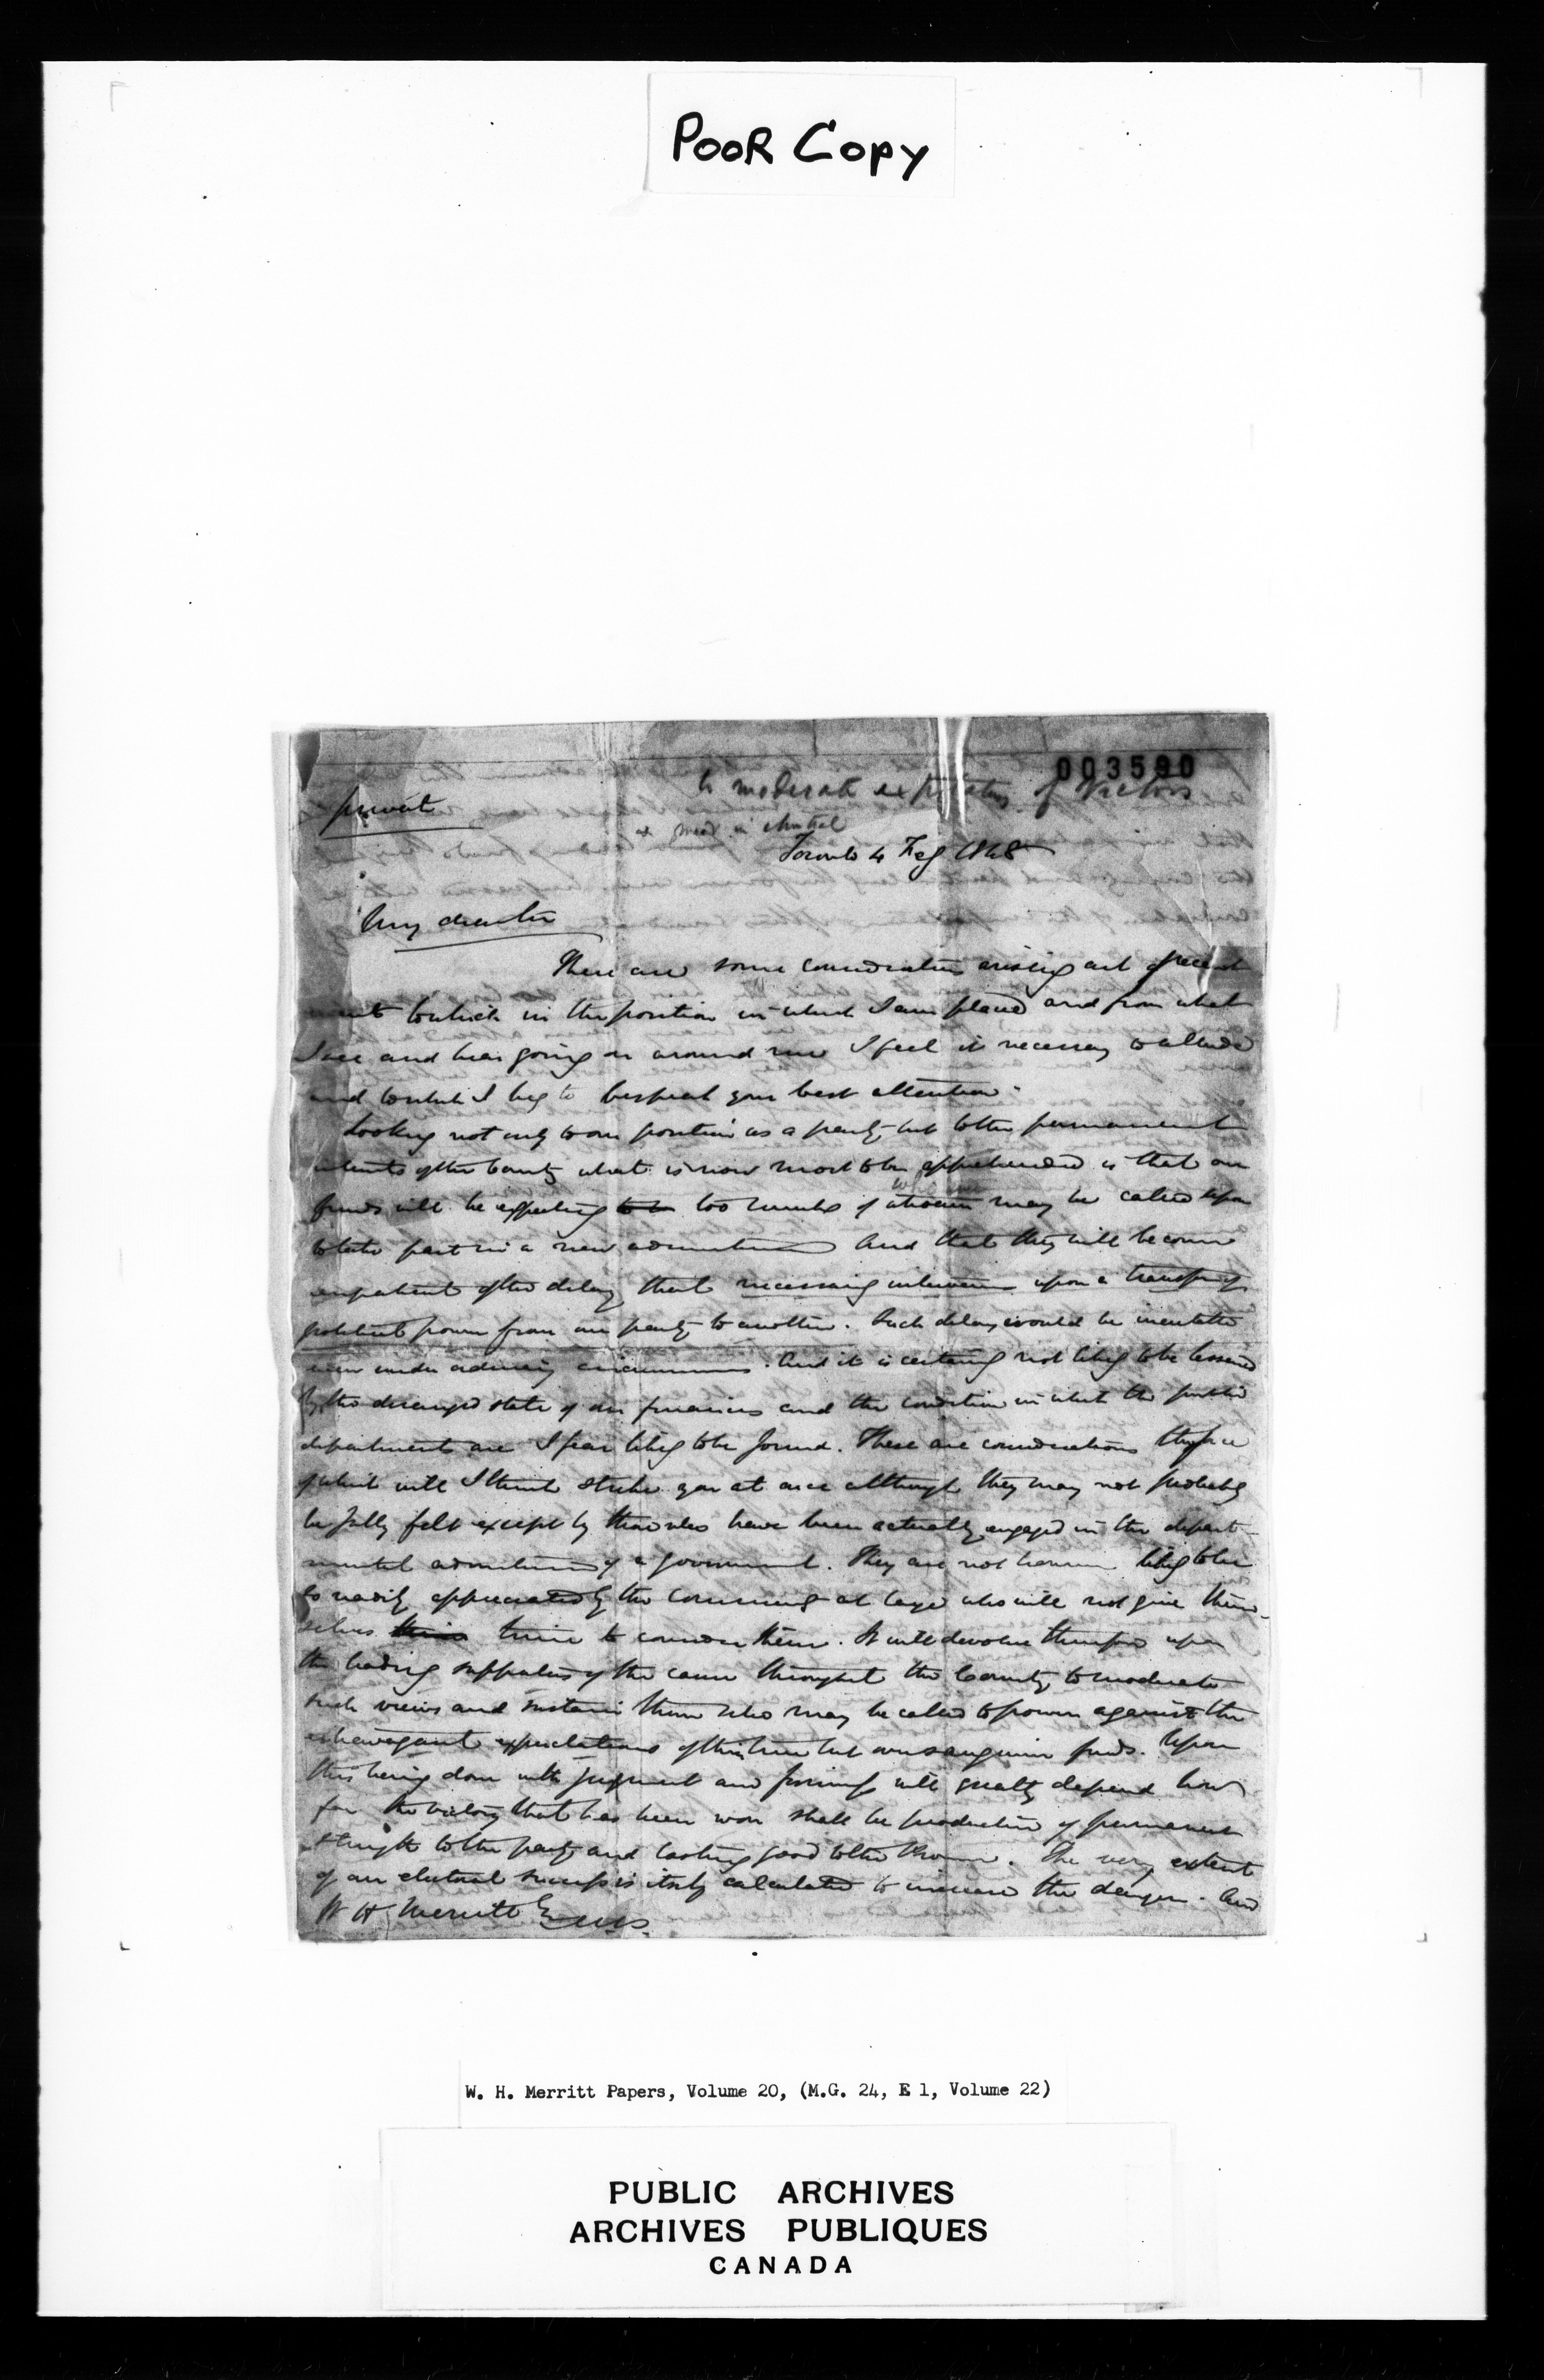 POOR COPY
003590
to moderate expectations of Victors
private
Toronto 4 Feby 1848
My dear Sir
There are some considerations arising out of recent
events to which in the position in which I am placed and from what
I see and hear going on around me I feel it necessary to allude
and to which I beg to bespeak your best attention.
Looking not only to our position as a party but to the permanent
interests of the County what is now most to be apprehended is that our
friends will be expecting too much of whoever may be called upon
to take part in a new administration and that they will become
impatient of the delay that necessarily intervenes upon a transfer of
political power from one party to another. Such delay would be inevitable
even under ordinary circumstances. And it is certainly not likely to be lessened
by the deranged state of our finances and the condition in which the public
departments are I fear likely to be found. These are considerations the force
of which will I think strike you at once although they may not probably
be fully felt except by those who have been actually engaged in the depart-
mental administration of a government. They are not however likely to be
so readily appreciated by the community at large who will not give them-
selves time to consider them. It will devolve therefore upon
the leading supporters of the cause throughout the County to moderate
such views and sustain them who may be called to power against the
extravagant expectations of their true but over sanguine friends. Upon
this being done with judgment and firmness will greatly depend how
far the victory that has been won shall be productive of permanent
strength to the party and lasting good to the Province. The very extent
of our electoral success is itself calculated to increase the danger. And
W H Merritt Esq
W. H. Merritt Papers, Volume 20, (M.G. 24, E 1, Volume 22)
PUBLIC ARCHIVES
ARCHIVES PUBLIQUES
CANADA